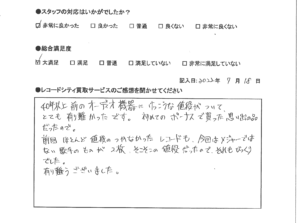 ●スタッフの対応はいかがでしたか？
☑ 非常に良かった □ 良かった □ 普通 □ 良くない □ 非常に良くない
●総合満足度
☑ 大満足 □ 満足 □ 普通 □ 満足していない □ 非常に満足していない
記入日：2022年 9月 18日
●レコードシティ買取サービスのご感想を聞かせてください
40年以上前のオーディオ機器にけっこうな値段がついて、
とても有り難かったです。初めてのボーナスで買った思い出の品
だったので。
前回ほとんど値段のつかなかったレコードも、今回はメジャーでは
ない歌手のものが2枚、そこそこの値段だったので、それもびっくり
でした。
有り難うございました。